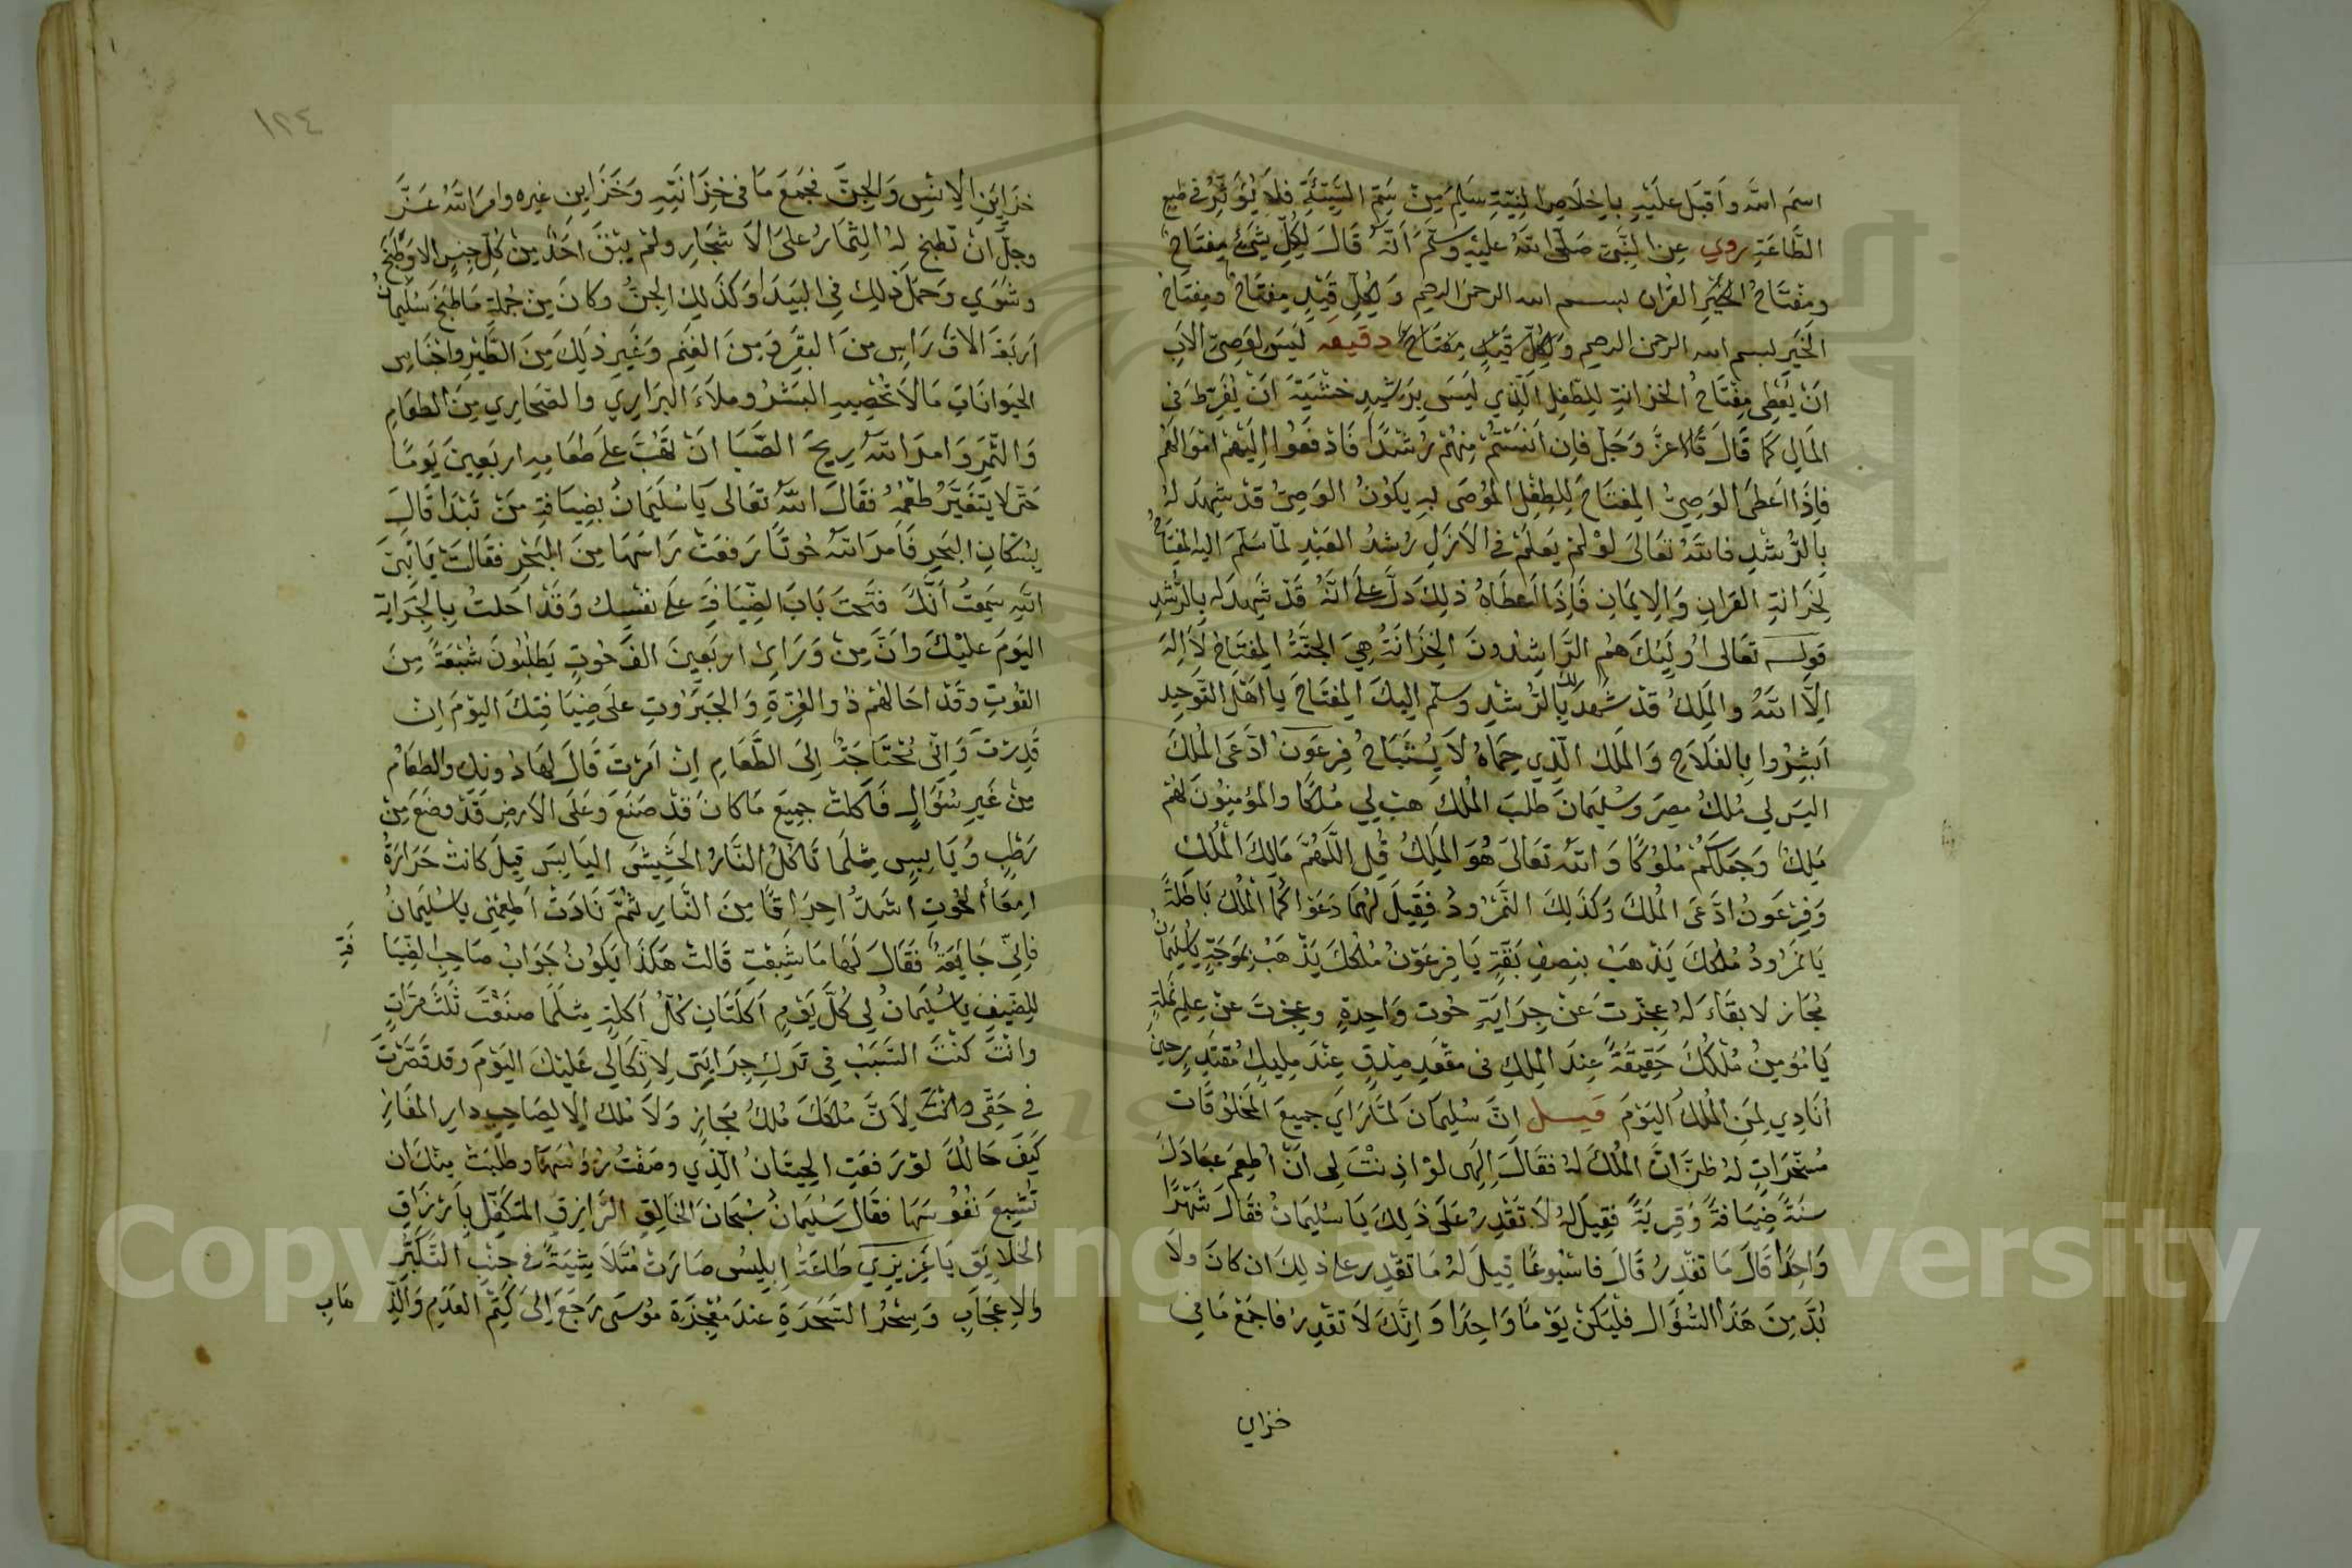 اسم الله واقبل عليه باخلاص النية سلم من سم السيئة فلا يؤثر في طبع
الطاعة روي عن النبي صلى الله عليه وسلم انه قال لكل شيء مفتاح
ومفتاح الخير القران لبسم الله الرحمن الرحيم ولكل قيد مفتاح ومفتاح
الخير لبسم الله الرحمن الرحيم ولكل قيد مفتاح دقيقه ليس لوصي الاب
ان يعطي مفتاح الخزانة للطفل الذي ليس برشيد خشية ان يفرط في
المال كما قال قال عز وجل فان انستم منهم رشدا فادفعوا اليهم اموالهم
فاذا اعطى الوصي المفتاح للطفل الموصى به يكون الوصي قد شهد له
بالرشد فالله تعالى لو لم يعلم في الازل رشد العبد لما سلم اليه المفتاح
لخزانة القران والايمان فاذا اعطاه ذلك دل على انه قد شهد له بالرشد
قوله تعالى اوليك هم الراشدون الخزانة هي الجنة المفتاح لا اله
الا الله والملك قد شهد لك بالرشد وسلم اليك المفتاح يا اهل التوحيد
ابشروا بالفلاح والملك الذي حماه لا يستباح فرعون ادعى الملك
اليس لي ملك مصر وسليمان طلب الملك هب لي ملكا والمؤمنون لهم
ملك وجعلكم ملوكا والله تعالى هو الملك قل اللهم مالك الملك
وفرعون ادعى الملك وكذلك النمرود فقيل لهما دعواكما الملك باطلة
يا نمرود ملكك يذهب بنصف بقة يا فرعون ملكك يذهب بموجة يا سليمان
مجاز لا بقاء له عجزت عن جراية حوت واحدة وعجزت عن علم نملة
يا مؤمن ملكك حقيقة عند الملك في مقعد صدق عند مليك مقتدر حين
أنادي لمن الملك اليوم قيل ان سليمان لما راي جميع المخلوقات
مسخرات له ظن ان الملك له فقال الهى لو اذنت لى ان أطعم عبادك
سنة ضيافة وقرية فقيل له لا تقدر على ذلك يا سليمان فقال شهرا
واحدا قال ما تقدر قال فاسبوعا قيل له ما تقدر على ذلك ان كان ولا
بد من هذا السؤال فليكن يوما واحدا وانك لا تقدر فاجمع ما في
خزاي
١٢٤
خزاين الانس والجن فجمع ما في خزانته وخزاين غيره وامر الله عز
وجل ان تطبخ له الثمار على الاشجار ولم يبق احد من كل جنس الا وطبخ
وشوي وحمل ذلك في البيدا وكذلك الجن وكان من جملة ما طبخ سليمان
اربعة الاف راس من البقر ومن الغنم وغير ذلك من الطير واجناس
الحيوانات ما لا تحصيه البشر وملاء البراري والصحاري من الطعام
والثمر وامر الله ريح الصبا ان تهب على طعامه اربعين يوما
حتى لا يتغير طعمه فقال الله تعالى يا سليمان بضيافة من تبدا قال
بسكان البحر فامر الله حوتا رفعت راسها من البحر فقالت يا نبي
الله سمعت انك فتحت باب الضيافة على نفسك وقد احلت بالجراية
اليوم عليك وان من وراي اربعين الف حوت يطلبون شبعة من
القوت وقد احالهم ذو العزة والجبروت على ضيافتك اليوم ان
قدرت واني محتاجة الى الطعام ان امرت قال لها دونك والطعام
من غير سؤال فاكلت جميع ما كان قد صنع وعلى الارض قد وضع من
رطب ويابس مثلما تاكل النار الحشيش اليابس قيل كانت حرارة
امعأ الحوت اشد احراقا من النار ثم نادت اطعمني يا سليمان
فاني جايعة فقال لها ما شبعت قالت هكذا يكون جواب صاحب الضيا فة
للضيف يا سليمان لي كل يوم اكلتان كل اكلة مثلما صنعت ثلث مرات
وانت كنت السبب في ترك جرايتي لاتكالي عليك اليوم وقد قصرت
في حقي لان ملكك ملك مجاز ولا ملك الا لصاحب دار المفاز
كيف حالك لو رفعت الحيتان الذي وصفت رؤسها وطلبت منك ان
تشبع نفوسها فقال سليمان سبحان الخالق الرازق المتكفل بارزاق
الخلايق يا عزيزي طاعة ابليس صارت متلاشية في جنب التكبر
والاعجاب وسحر السحرة عند معجزة موسى رجع الى كتم العدم والذ هاب
Copyright © King Saud University